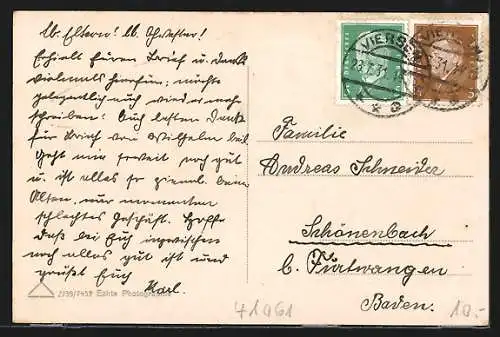 Lb. Eltern! Lb. Schwester!
Erhielt Euren Brief u. danke
vielmals hierfür; möchte
gelegentlich auch wieder mehr
schreiben! Auch besten Dank
für Brief von Wilhelm bei
Geht mir soweit noch gut
u. ist alles so ziemlich beim
Alten, nur momentan
schlechtes Geschäft. Hoffe
daß bei Euch inzwischen
noch alles gut ist und
grüßt Euch
Karl.
VIERSEN
23.7.31
Familie
Andreas Schneider
Schönenbach
b. Furtwangen
Baden.
Echte Photographie
41061
10.-